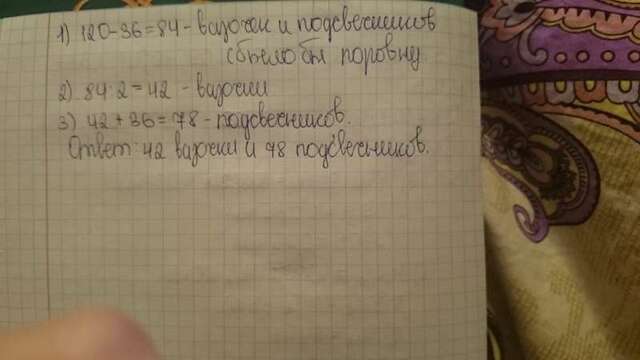 1) 120-36=84 - вазочек и подсвечников
было бы поровну
2) 84:2=42 - вазочки
3) 42+36=78 - подсвечников.
Ответ: 42 вазочки и 78 подсвечников.